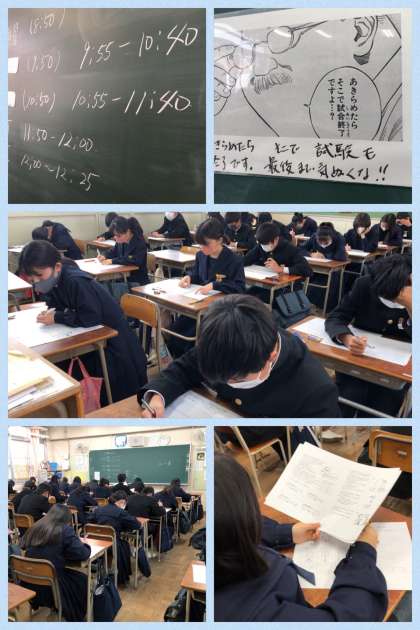 (8:50)
(9:50) 9:55−10:40
(10:50) 10:55−11:40
11:50−12:00
12:00〜12:25
あきらめたら
そこで試合終了
ですよ…?
きらめたら そこで 試験も
です。最後まで気ぬくな!!